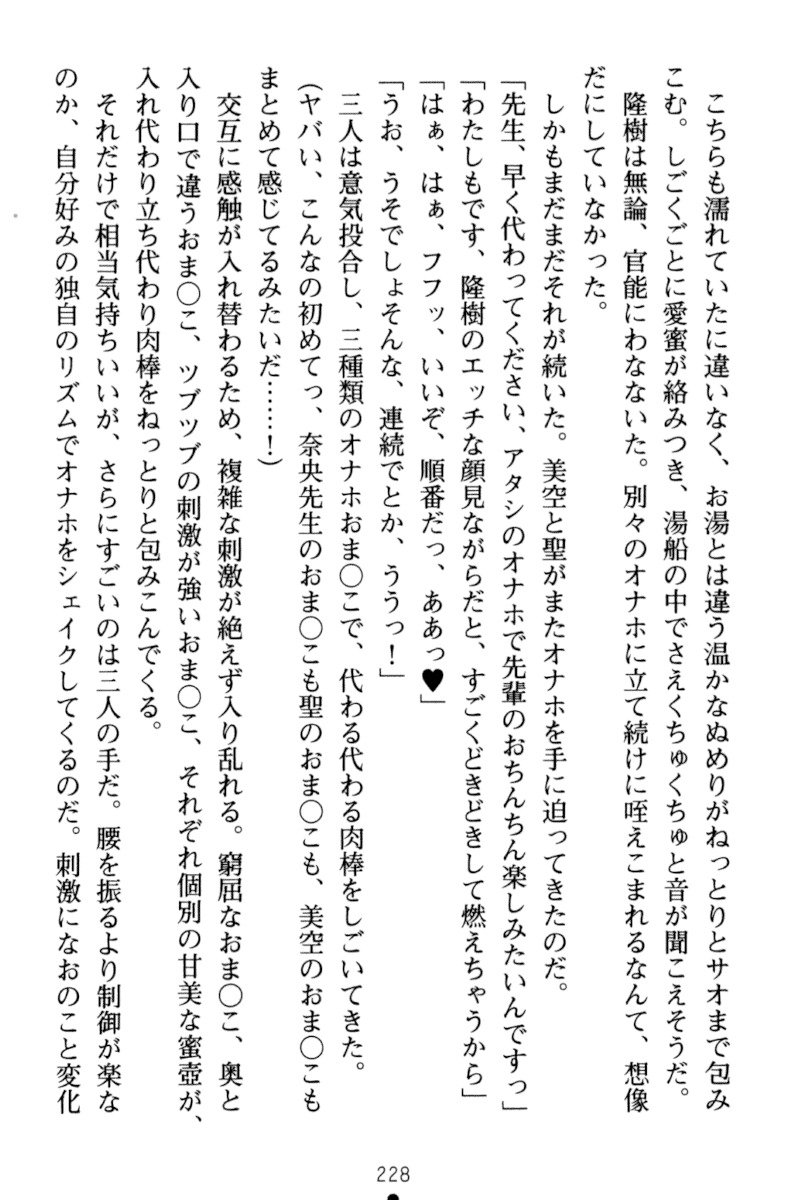 こちらも濡れていたに違いなく、お湯とは違う温かなぬめりがねっとりとサオまで包み
こむ。しごくごとに愛蜜が絡みつき、湯船の中でさえくちゅくちゅと音が聞こえそうだ。
隆樹は無論、官能にわなないた。別々のオナホに立て続けに咥えこまれるなんて、想像
だにしていなかった。
しかもまだまだそれが続いた。美空と聖がまたオナホを手に迫ってきたのだ。
「先生、早く代わってください、アタシのオナホで先輩のおちんちん楽しみたいんですっ」
「わたしもです、隆樹のエッチな顔見ながらだと、すごくどきどきして燃えちゃうから」
「はぁ、はぁ、フフッ、いいぞ、順番だっ、ああっ♥」
「うお、うそでしょそんな、連続でとか、ううっ！」
三人は意気投合し、三種類のオナホおま〇こで、代わる代わる肉棒をしごいてきた。
（ヤバい、こんなの初めてっ、奈央先生のおま〇こも聖のおま〇こも、美空のおま〇こも
まとめて感じてるみたいだ……！）
交互に感触が入れ替わるため、複雑な刺激が絶えず入り乱れる。窮屈なおま〇こ、奥と
入り口で違うおま〇こ、ツブツブの刺激が強いおま〇こ、それぞれ個別の甘美な蜜壺が、
入れ代わり立ち代わり肉棒をねっとりと包みこんでくる。
それだけで相当気持ちいいが、さらにすごいのは三人の手だ。腰を振るより制御が楽な
のか、自分好みの独自のリズムでオナホをシェイクしてくるのだ。刺激になおのこと変化
228